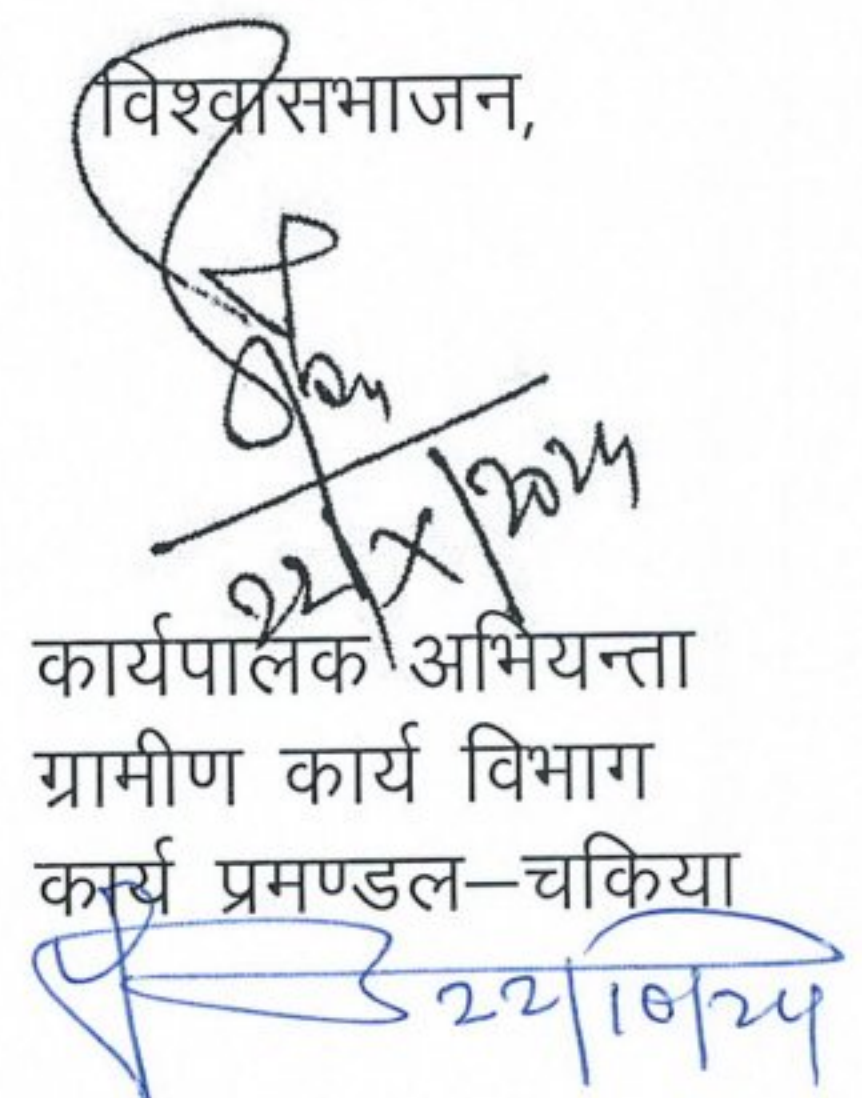 विश्वासभाजन,
22/X/2024
कार्यपालक अभियन्ता
ग्रामीण कार्य विभाग
कार्य प्रमण्डल–चकिया
22/10/24